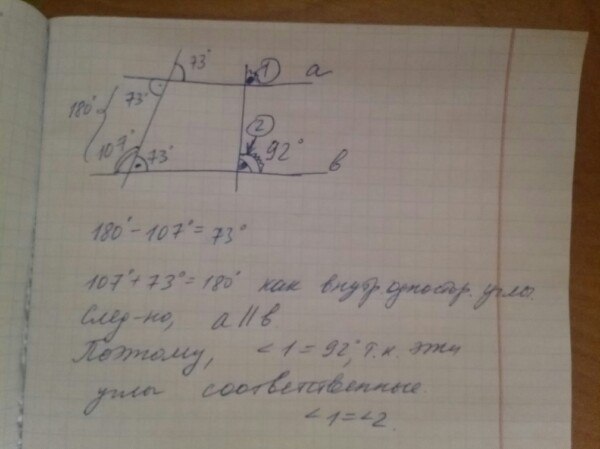 73°
1
a
73°
180°
2
107°
73°
92°
в
180° - 107° = 73°
107° + 73° = 180° как внутр. одностор. углы.
След-но, a || в
Поэтому, ∠1 = 92°, т.к. эти
углы соответственные.
∠1 = ∠2.